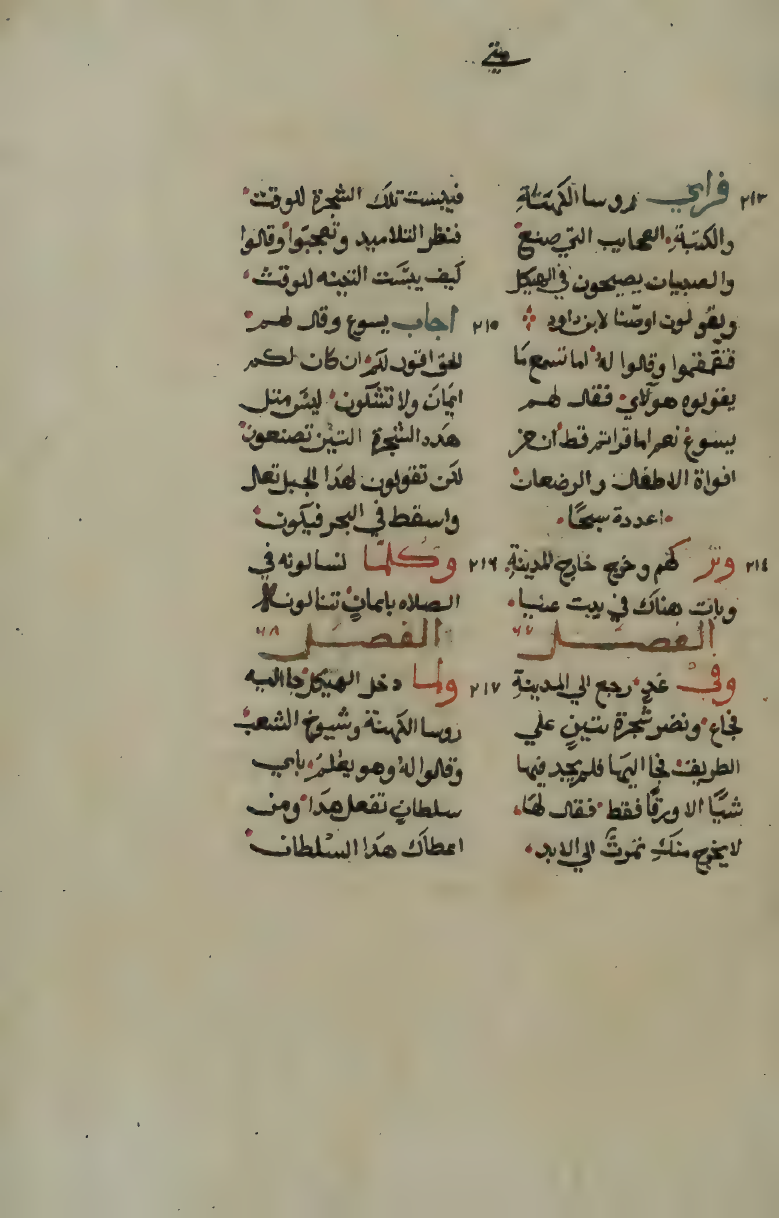 متي
٢١٣ فراي روسا الكهنة
والكتبة العجايب التي صنع
والصبيان يصيحون في الهيكل
ويقولون اوصنا لابن داود
فتقمقموا وقالوا له اما تسمع ما
يقولوه هولاي فقال لهم
يسوع نعم اما قراتم قط ان من
افواة الاطفال والرضعان
اعددة سبحا
٢١٤ وتركهم وخرج خارج المدينة
وبات هناك في بيت عنيا
الفصل ٦٧
وفي غد رجع الي المدينة
فجاع ونضر شجرة تين علي
الطريق فجا اليها فلم يجد فيها
شيا الا ورقا فقط فقال لها
لا يخرج منك تموت الي الابد
فيبست تلك الشجرة للوقت
فنظر التلاميد وتعجبوا وقالوا
كيف يبست التينه للوقت
٢١٥ اجاب يسوع وقال لهم
الحق اقول لكم ان كان لكم
ايمان ولا تشكون ليس مثل
هده الشجرة التين تصنعون
لكن تقولون لهدا الجبل تعال
واسقط في البحر فيكون
٢١٦ وكلما تسالونه في
الصلاه بايمان تنالونه
الفصل ٦٨
٢١٧ ولما دخل الهيكل جا اليه
روسا الكهنة وشيوخ الشعب
وقالوا له وهو يعلم باي
سلطان تفعل هدا ومن
اعطاك هدا السلطان